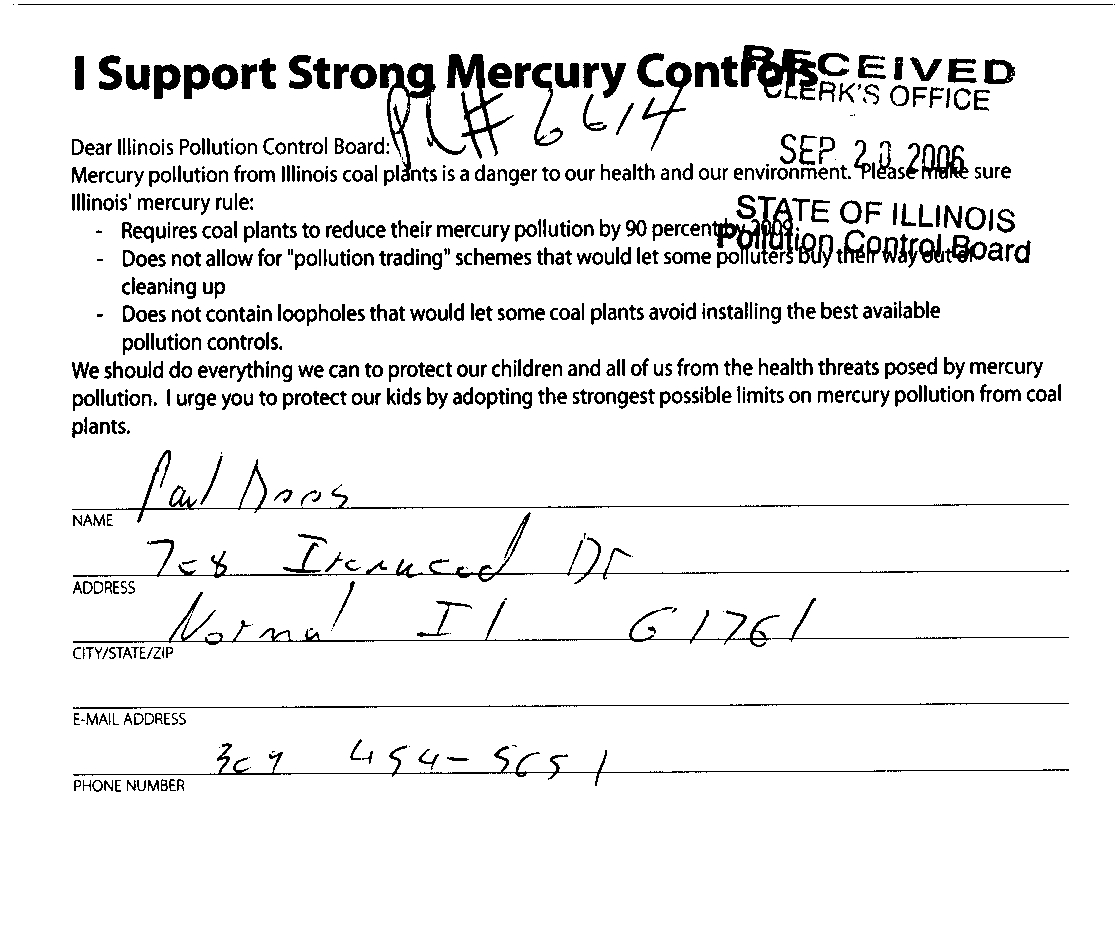 I Support Strong Mercury Controls
RECEIVED
CLERK'S OFFICE
PC# 6614
SEP 20 2006
STATE OF ILLINOIS
Pollution Control Board
Dear Illinois Pollution Control Board:
Mercury pollution from Illinois coal plants is a danger to our health and our environment. Please make sure
Illinois' mercury rule:
- Requires coal plants to reduce their mercury pollution by 90 percent by 2009
- Does not allow for "pollution trading" schemes that would let some polluters buy their way out of
cleaning up
- Does not contain loopholes that would let some coal plants avoid installing the best available
pollution controls.
We should do everything we can to protect our children and all of us from the health threats posed by mercury
pollution. I urge you to protect our kids by adopting the strongest possible limits on mercury pollution from coal
plants.
Paul
NAME
708 Ironwood Dr
ADDRESS
Normal Il 61761
CITY/STATE/ZIP
E-MAIL ADDRESS
309 454-5651
PHONE NUMBER